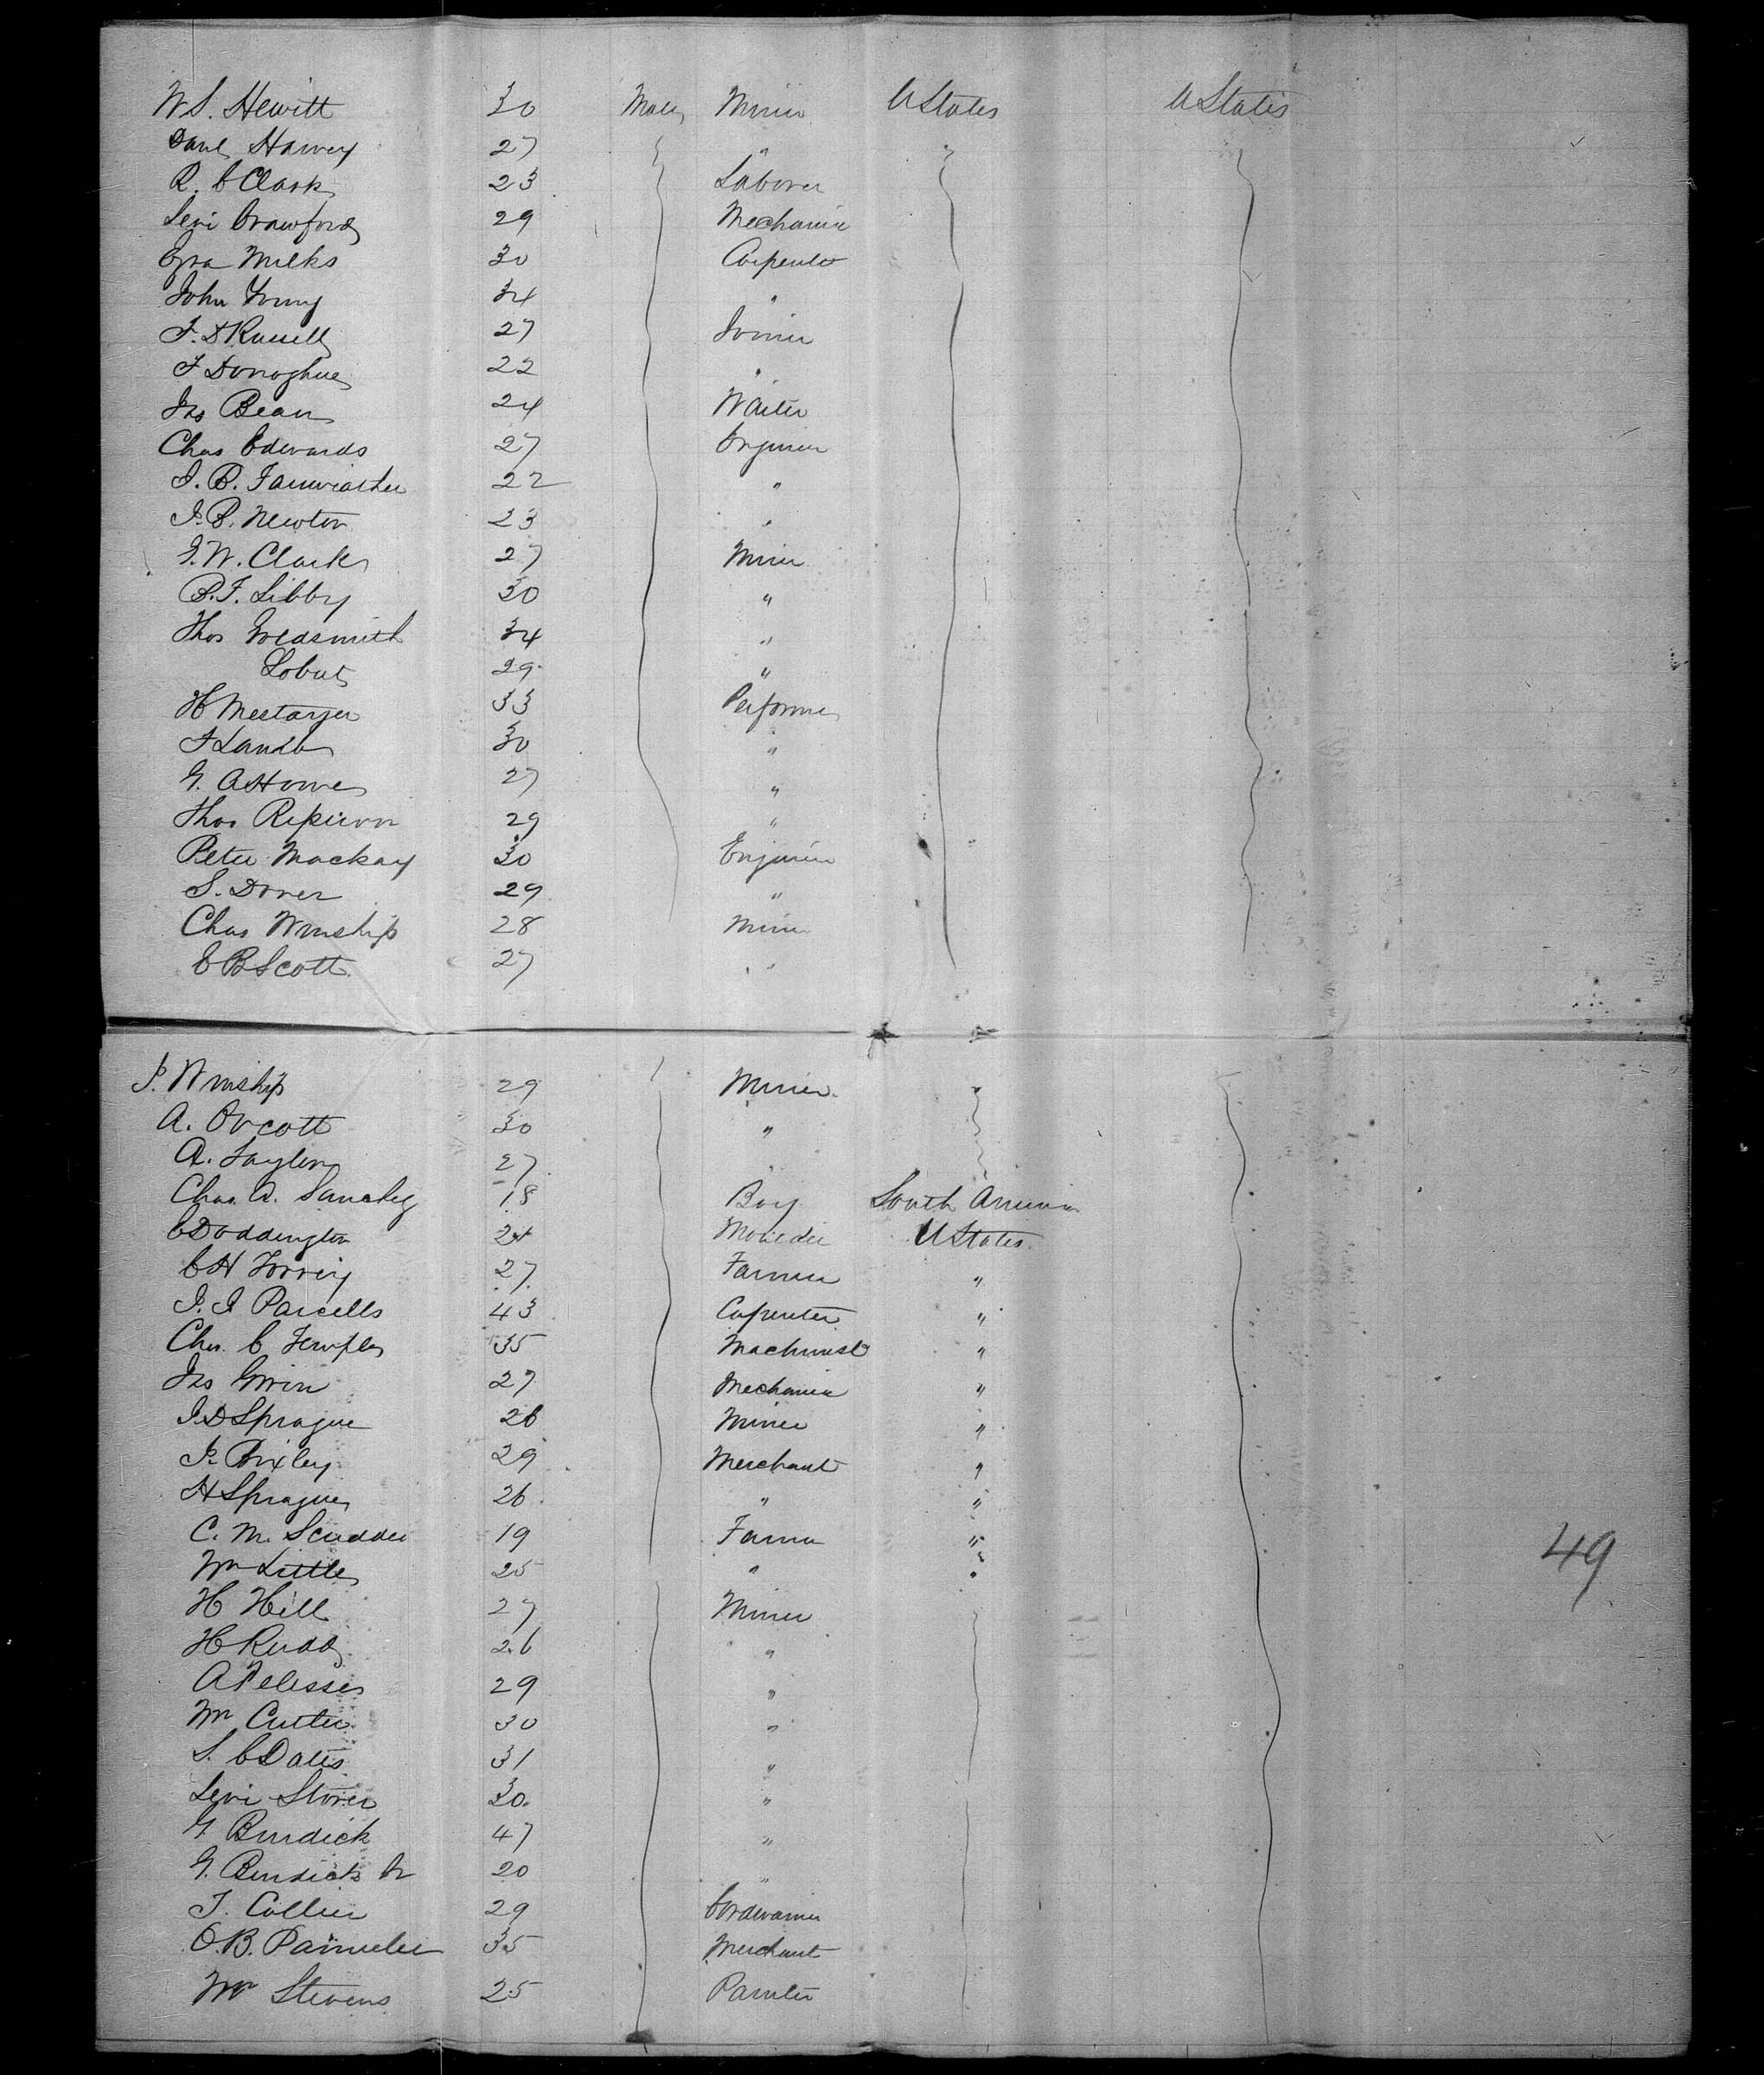 W S. Hewitt 30 Male Miner U States U States
Danl Harvey 27 "
R. C Clark 23 Laborer
Levi Crawford 29 Mechanic
Ezra Milks 30 Carpenter
John Young 34 "
F. D Russell 27 Joiner
F Donoghue 22 "
Jas Bean 24 Waiter
Chas Edwards 27 Engineer
J. B. Fairweather 22 "
J. B. Newton 23 "
J. W. Clark 27 Miner
B. F. Libby 30 "
Thos Goldsmith 34 "
29 "
H Mestayer 33 Performer
30 "
G. A Howe 27 "
Thos 29 "
Peter Mackay 30 Engineer
S. Dover 29 "
Chas Winship 28 Miner
E B Scott 27 "
J. Winship 29 Miner "
A. Orcott 30 "
A. Taylor 27 "
Chas. A. Sanchez 18 Boy South America
C Doddington 24 Moulder U States
C H Torrey 27 Farmer "
J. J Parcells 43 Carpenter "
Chas. C Temple 35 Machinist "
Jas Gwin 27 Mechanic "
J. D Sprague 26 Miner "
J. Bixley 29 Merchant "
H Sprague 26 " "
C. M. Scudder 19 Farmer "
Wm Little 25 " "
49
H Hill 27 Miner
H Rudd 26 "
A Pelissier 29 "
Wm Cutter 30 "
S. C Dates 31 "
Levi Storer 30 "
G Burdick 47 "
G. Burdick Jr 20 "
T. Collier 29 Cordwainer
O. B. Parmelee 35 Merchant
Wm Stevens 25 Painter